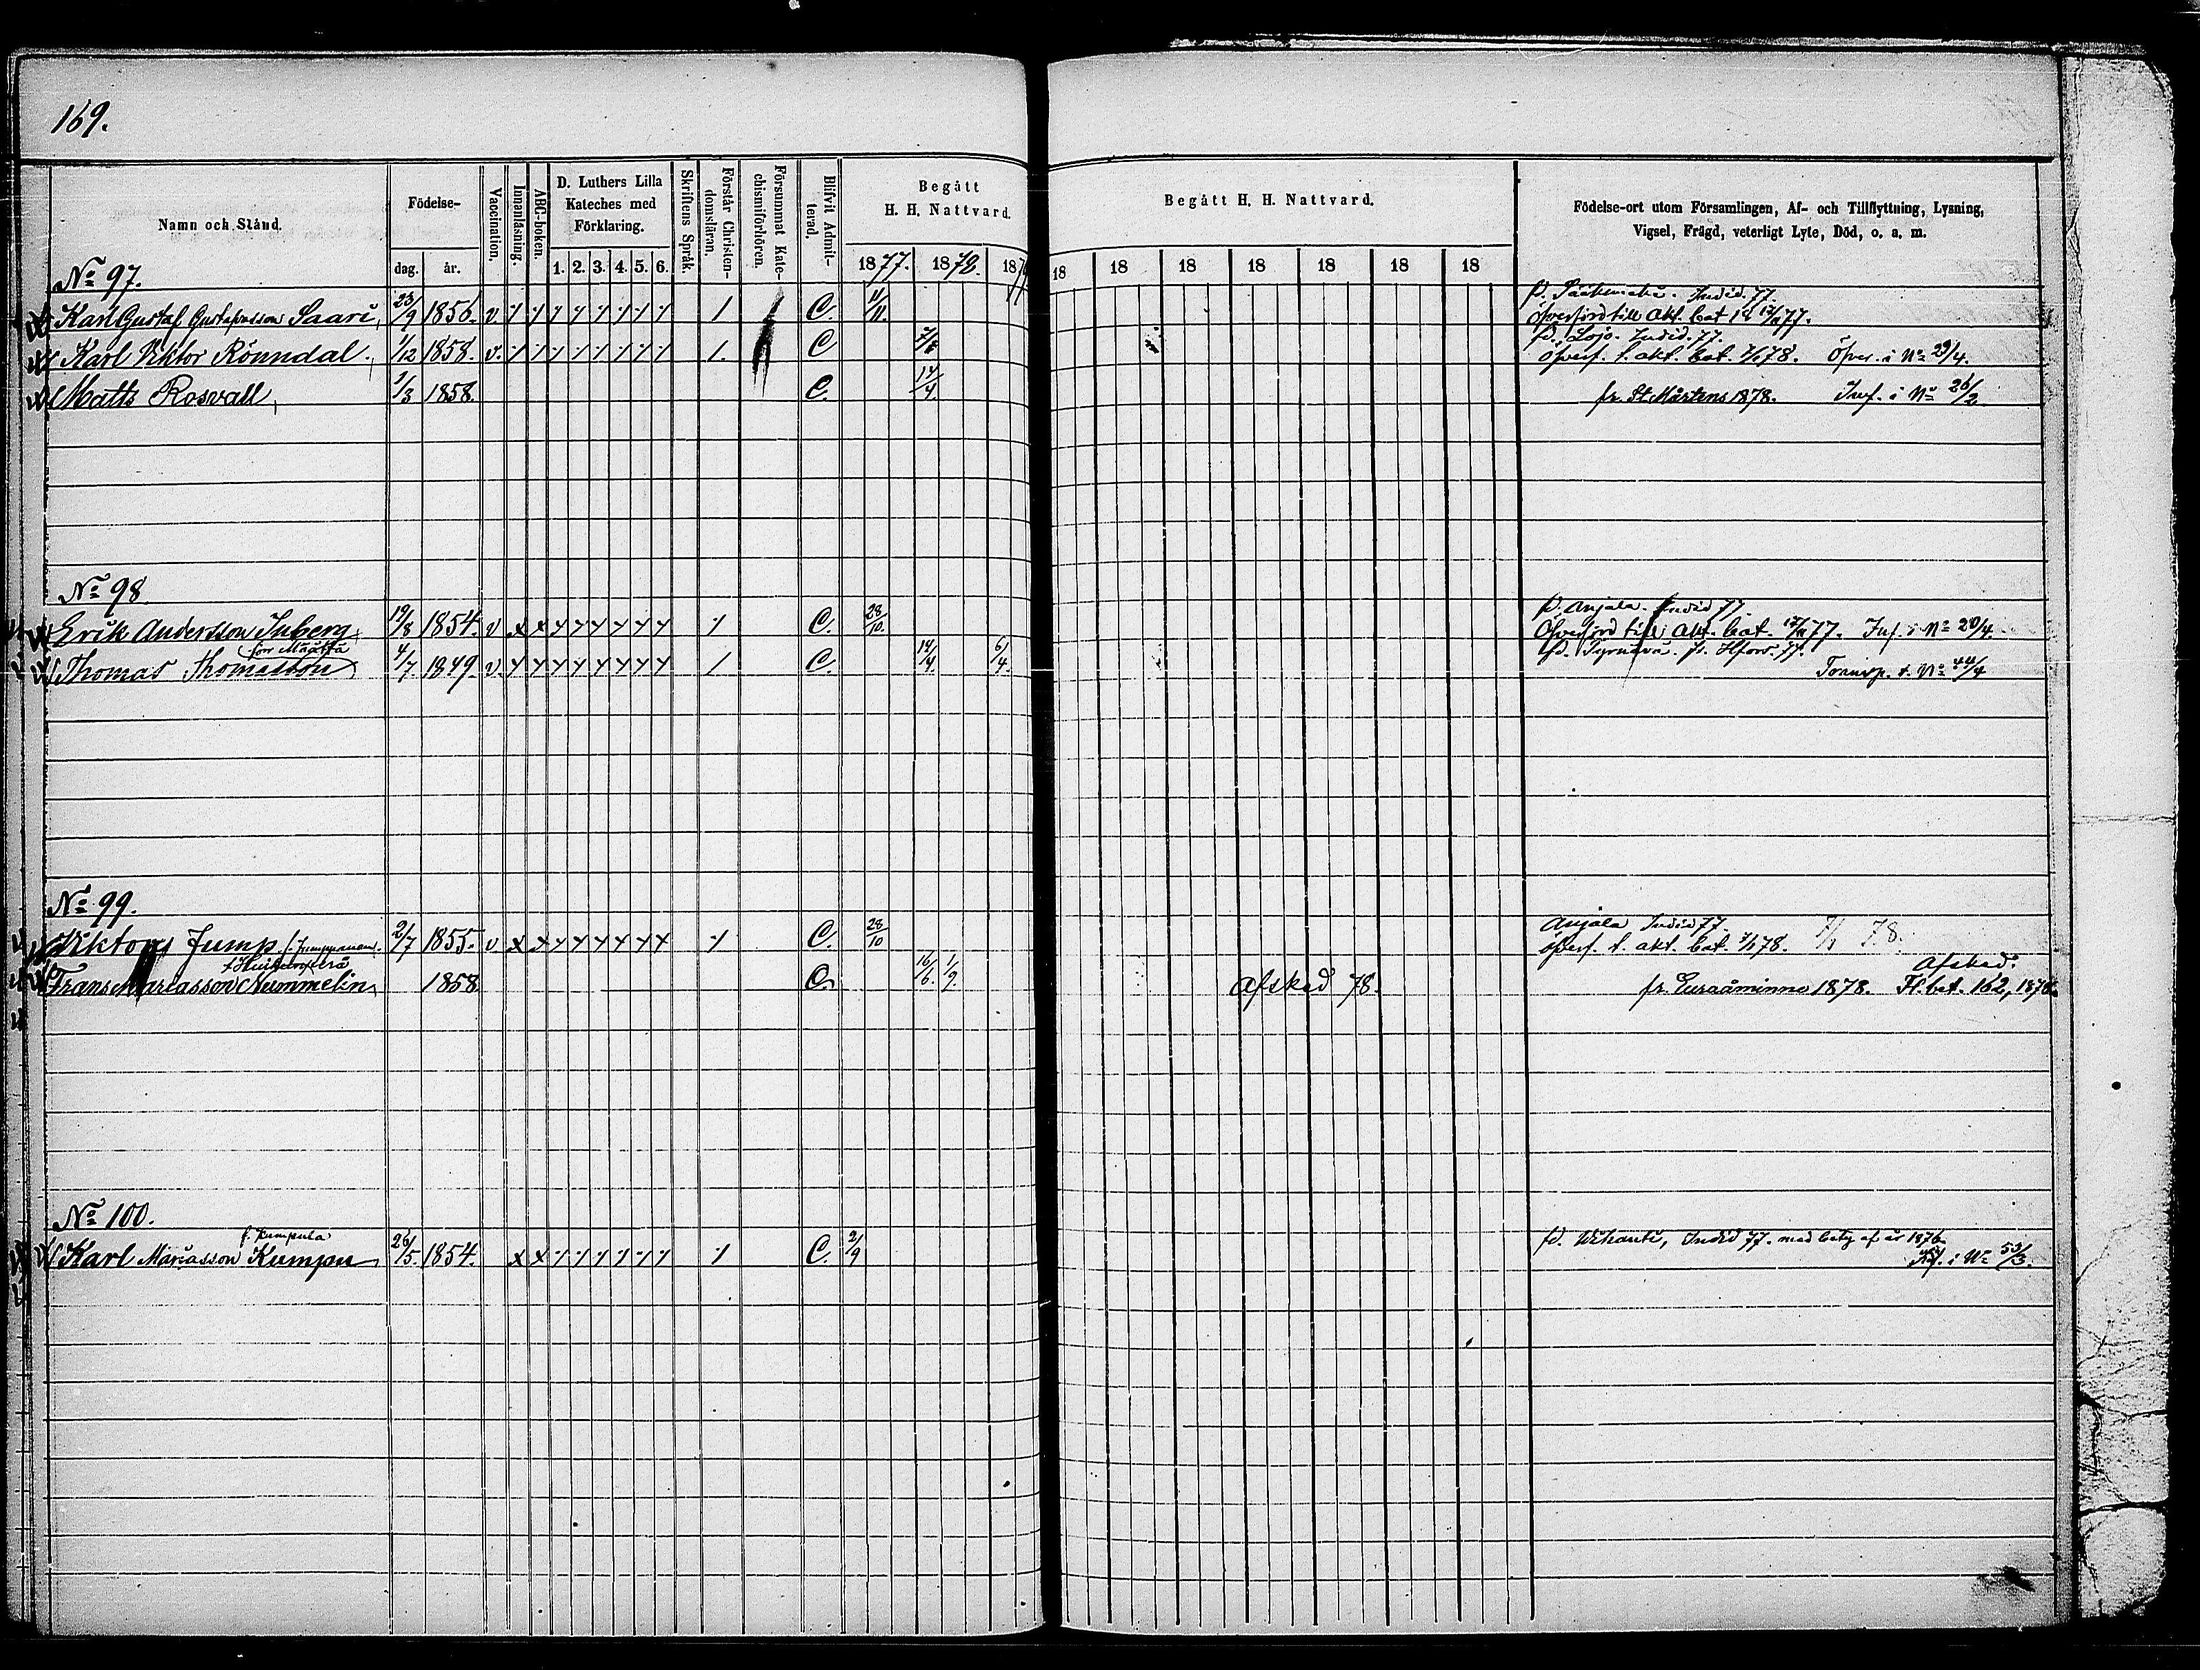 169.
Namn och Stånd.
Födelse-
dag. år.
Vaccination.
Innanläsning.
ABC-boken.
D. Luthers Lilla
Kateches med
Förklaring.
1. 2. 3. 4. 5. 6.
Skriftens Språk.
Förstår Christen-
domsläran.
Försummat Kate-
chismiförhören.
Blifvit Admit-
terad.
Begått
H. H. Nattvard.
1877. 1878. 1879
Begått H. H. Nattvard.
18 18 18 18 18 18 18
Födelse-ort utom Församlingen, Af- och Tillflyttning, Lysning,
Vigsel, Frägd, veterligt Lyte, Död, o. a. m.
No 97.
Karl Gustaf Gustafsson Saari, 23/9 1856. v. C. 11/11. Indid. 77.
öfverförd till akt. bat 77.
Karl Viktor Rönndal. 1/12 1858. v. C. fd. Lojo. Indid. 77.
öfverf. t. akt. bat. 7/1 78. Öfver. i No 29/4.
Matts Rosvall, 1/3 1858. C. 14/4. fr. St Mårtens 1878. Inf. i No 26/2
No 98.
Erik Andersson Inberg 19/8 1854. v C. 28/10. fd. Anjala. Indid 77.
Öfverförd till akt. bat. 77. Inf. i No 20/4
Thomas Thomasson 4/7 1849. v. C. 14/4. 6/4. fd. Tyrnävä. fr. Hfors. 77.
Transp. t. No 44/4
No 99.
Viktor Jump 2/7 1855. v C. 28/10 Anjala Indid 77.
öfverf. t. akt. bat. 7/1 78. 7/1 78.
Frans Mariasson Nummelin 1858 C. 16/6. 1/9. Afsked 78. fr. Euraåminne 1878. Afsked.
Fl. bet. 162, 1878.
No 100.
f. Kumpula
Karl Mariasson Kumpu 26/5. 1854. C. 2/9 fd. Vihanti, Indid 77. med betyg af år 1876
i No 53/3.